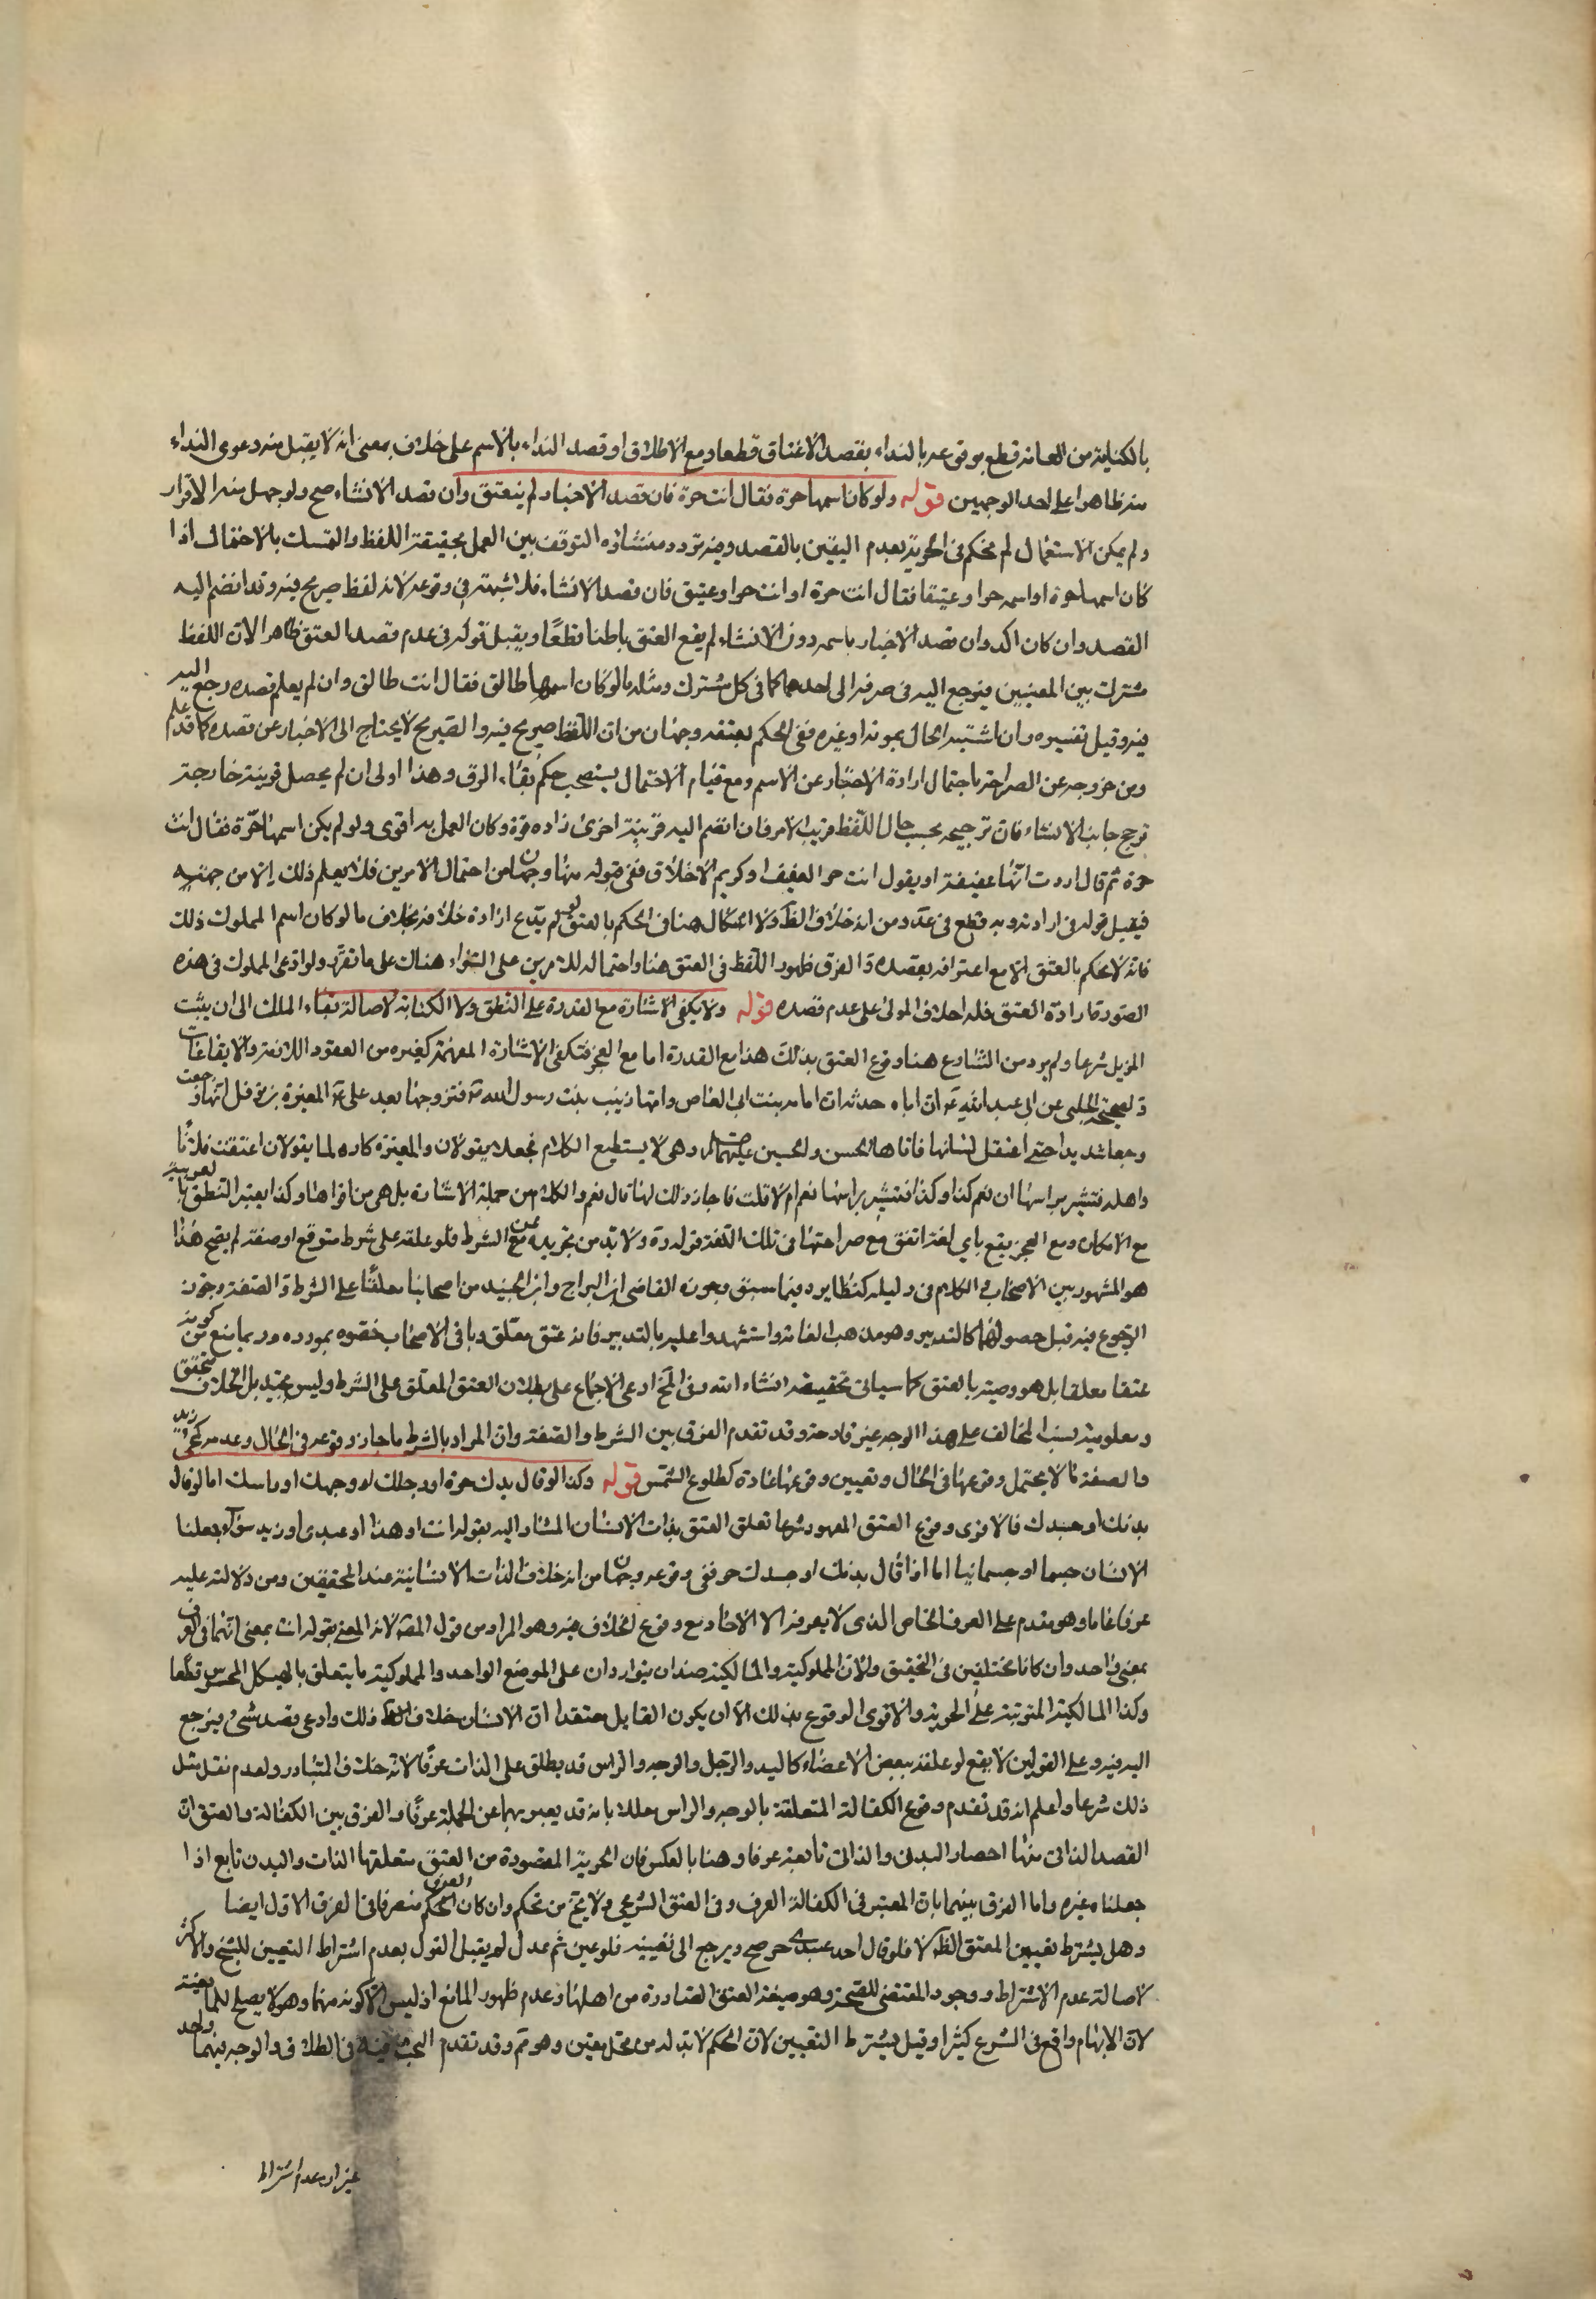 بالكناية من العامة قطع بوقوعه بالنداء بقصد الاعتاق قطعا ومع الاطلاق او قصد النداء بالاسم على خلاف بمعنى انه لا يقبل منه دعوى النداء
منه ظاهرا على احد الوجهين قوله ولو كان اسمها حرة فقال انت حرة فان قصد الاخبار لم ينعتق وان قصد الانشاء صح ولو جهل منه الاقرار
ولم يمكن الاستعمال لم يحكم فى الحرية بعدم اليقين بالقصد وفيه تردد ومنشاؤه التوقف بين العمل بحقيقة اللفظ والتمسك بالاحتمال اذا
كان اسمها حرة او اسمه حرا وعتيقا فقال انت حرة او انت حر او عتيق فان قصد الانشاء فلا شبهة فى وقوعه لانه لفظ صريح فيه وقد انضم اليه
القصد وان كان اكد وان قصد الاخبار باسمه دون الانشاء لم يقع العتق باطنا قطعًا ويقبل قوله فى عدم قصد العتق ظاهرا لان اللفظ
مشترك بين المعنيين فيرجع اليه فى صرفه الى احدهما كما فى كل مشترك ومثله ما لو كان اسمها طالق فقال انت طالق وان لم يعلم قصده رجع اليه
فيه وقبل تفسيره وان اشتبه الحال بموته او غيره ففى الحكم بعتقه وجهان من ان اللفظ صريح فيه والصريح لا يحتاج الى الاخبار عن قصده كما قد علم
ومن خروجه عن الصراحة باحتمال ارادة الاخبار عن الاسم ومع قيام الاحتمال يستصحب حكم بقاء الرق وهذا اولى ان لم يحصل قرينة خارجة
ترجح جانب الانشاء فان ترجيحه بحسب حال اللفظ قريب الامر فان انضم اليه قرينة اخرى زاده قوة وكان العمل به اقوى ولو لم يكن اسمها حرة فقال انت
حرة ثم قال اردت انها عفيفة او يقول انت حر العفيف او كريم الاخلاق ففى قبوله منها وجهان من احتمال الامرين فلا يعلم ذلك الا من جهته
فيقبل قوله فى ارادته وبه قطع فى عد ومن انه خلاف الظ ولا اشكال هنا فى الحكم بالعتق لو لم يدع ارادة خلافه بخلاف ما لو كان اسم المملوك ذلك
فانه لا يحكم بالعتق الا مع اعترافه بقصده والفرق ظهور اللفظ فى العتق هنا واحتماله للامرين على السواء هناك على ما تقرر ولو ادعى المملوك فى هذه
الصورة ارادة العتق فله احلاف المولى على عدم قصده قوله ولا يكفى الاشارة مع القدرة على النطق ولا الكتابة لاصالة بقاء الملك الى ان يثبت
المزيل شرعا ولم يرد من الشارع هنا وقوع العتق بذلك هذا مع القدرة اما مع العجز فتكفى الاشارة المفهمة كغيره من العقود اللازمة والايقاعات
وفى صحيحة الحلبى عن ابى عبد الله ع ان اباه حدثه ان امامه بنت ابى العاص وامها زينب بنت رسول الله ص فتزوجها بعد على ع المغيرة بن نوفل انها وجعت
وجعا شديدا حتى اعتقل لسانها فاتاها الحسن والحسين عليهما السلم وهى لا يستطيع الكلام فجعلا يقولان والمغيرة كاره لما يقولان اعتقت فلانًا
واهله فتشير براسها ان نعم كذا وكذا فتشير براسها نعم ام لا قلت فاجاز ذلك لها قال نعم والكلام من جملة الاشارة بل هى من اقواها وكذا يعتبر النطق بالعربية
مع الامكان ومع العجز يقع باي لغة اتفق مع صراحتها فى تلك اللغة قوله ره ولا بد من تجريده عن الشرط فلو علقه على شرط متوقع او صفة لم يصح هذا
هو المشهور بين الاصحاب والكلام فى دليله كنظايره فيما سبق وجوزه القاضى ابن البراج وابن الجنيد من اصحابنا معلقًا على الشرط والصفة وجوز
الرجوع فيه قبل حصولهما كالتدبير وهو مذهب العامة واستشهدوا عليه بالتدبير فانه عتق معلق وباقى الاصحاب خصوه بمورده وربما منع من كونه
عتقا معلقا بل هو وصية بالعتق كما سياتى تحقيقه انشاء الله وفى المخ ادعى الاجماع على بطلان العتق المعلق على الشرط وليس بجيد بل الخلاف متحقق
ومعلومية نسب المخالف على هذا الوجه غير قادحة وقد تقدم الفرق بين الشرط والصفة وان المراد بالشرط ما جاز وقوعه فى الحال وعدمه كمجئ زيد
والصفة ما لا يحتمل وقوعها فى الحال وتعيين وقوعها عادة كطلوع الشمس قوله وكذا لو قال يدك حرة او رجلك او وجهك او راسك اما لو قال
بدنك او جسدك فالاقوى وقوع العتق المعهود شرعا تعلق العتق بذات الانسان المشار اليه بقوله انت او هذا او عبدى او زيد سواء جعلنا
الانسان جسما او جسمانيا اما اذا قال بدنك او جسدك حر ففى وقوعه وجهان من انه خلاف الذات الانسانية عند المحققين ومن دلالته عليه
عرفا عاما وهو مقدم على العرف الخاص الذى لا يعرفه الا الاحاد مع وقوع الخلاف فيه وهو المراد من قول المصّ لانه المعنى بقوله انت بمعنى انهما فى العرف
بمعنى واحد وان كانا مختلفين فى التحقيق ولان المملوكية والمالكية ضدان يتواردان على الموضع الواحد والمملوكية ما يتعلق بالهيكل المحسوس قطعا
وكذا المالكية المترتبة على الحرية والاقوى الوقوع بذلك الا ان يكون القايل معتقدا ان الانسان خلاف ذلك وادعى قصد شئ فيرجع
اليه فيه وعلى القولين لا يقع لو علقه ببعض الاعضاء كاليد والرجل والوجه والراس قد يطلق على الذات عرفًا لانه خلاف المتبادر ولعدم نقل مثل
ذلك شرعا واعلم انه قد تقدم وقوع الكفالة المتعلقة بالوجه والراس معللا بانه قد يعبر بهما عن الجملة عرفًا والفرق بين الكفالة والعتق ان
القصد الذاتى منها احضار البدن والذات تابعة عرفا وهنا بالعكس فان الحرية المقصودة من العتق متعلقها الذات والبدن تابع اذا
جعلناه غيره واما الفرق بينهما بان المعتبر فى الكفالة العرف وفى العتق الشرعى ولا يخ من تحكم وان كان الحكم العرفى منصرفا فى الفرق الاول ايضا
وهل يشترط تعيين المعتق الظ لا فلو قال احد عبيدى حر صح ويرجع الى تعيينه فلو عين ثم عدل لم يقبل القول بعدم اشتراط التعيين للشيخ والاكثر
لاصالة عدم الاشتراط ووجود المقتضى للصحة وهو صيغة العتق الصادرة من اهلها وعدم ظهور المانع اذ ليس الا كونه مبهما وهو لا يصلح للمانعية
لان الابهام واقع فى الشرع كثيرا وقيل يشترط التعيين لان الحكم لا بد له من محل معين وهو ثم وقد تقدم البحث فيه فى الطلاق والوجه فيهما واحد
غير ان عدم اشتراط